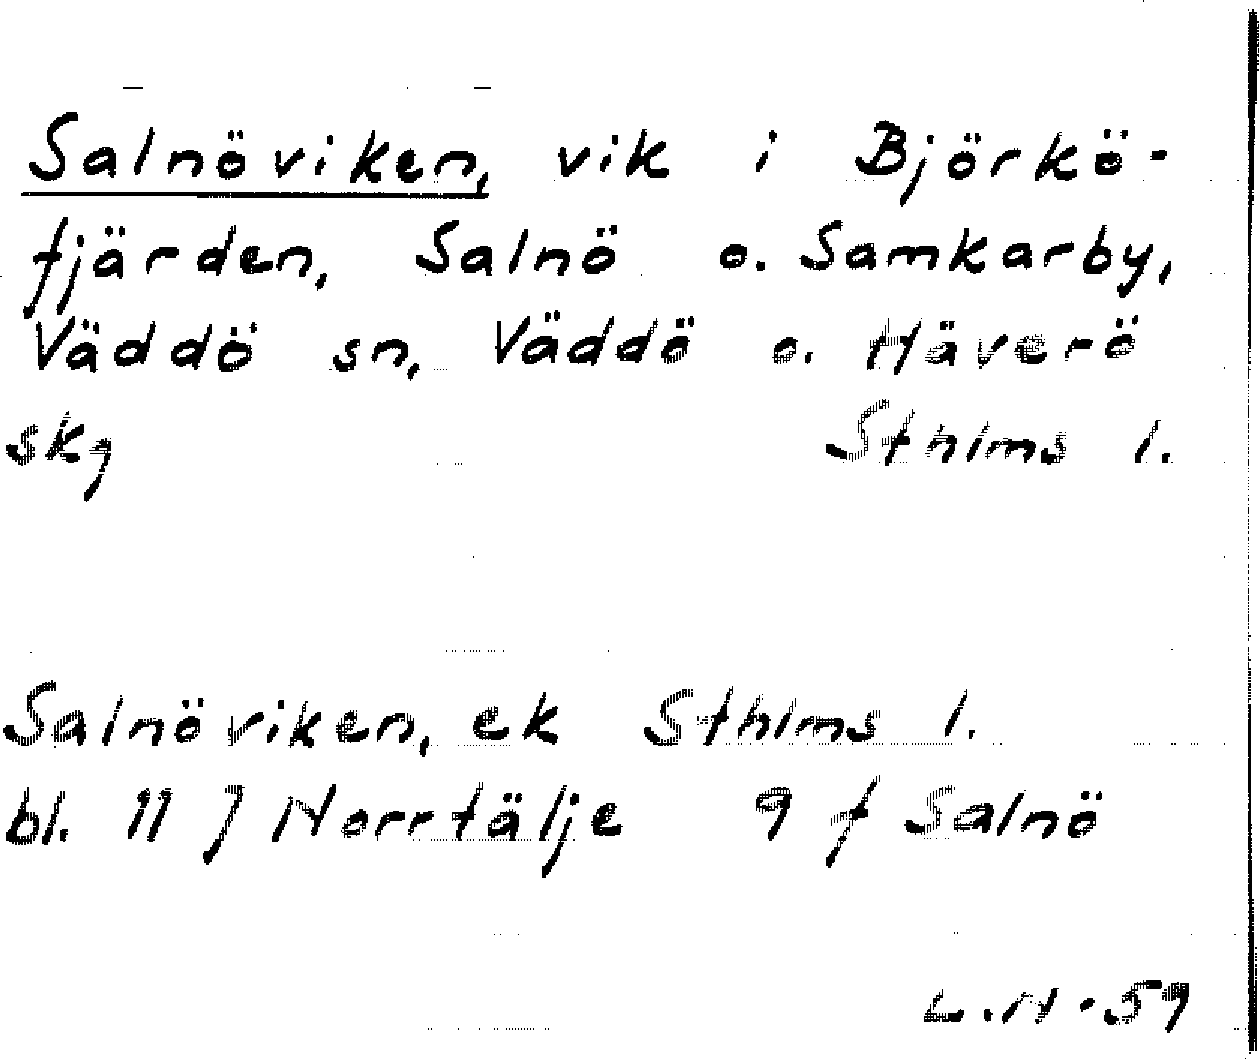 Salnöviken, vik i Björkö-
fjärden, Salnö o. Samkarby,
Väddö sn, Väddö o. Häverö
skg Sthlms l.
Salnöviken, ek Sthlms l.
bl. 11 J Norrtälje 9 f Salnö
L.H.59